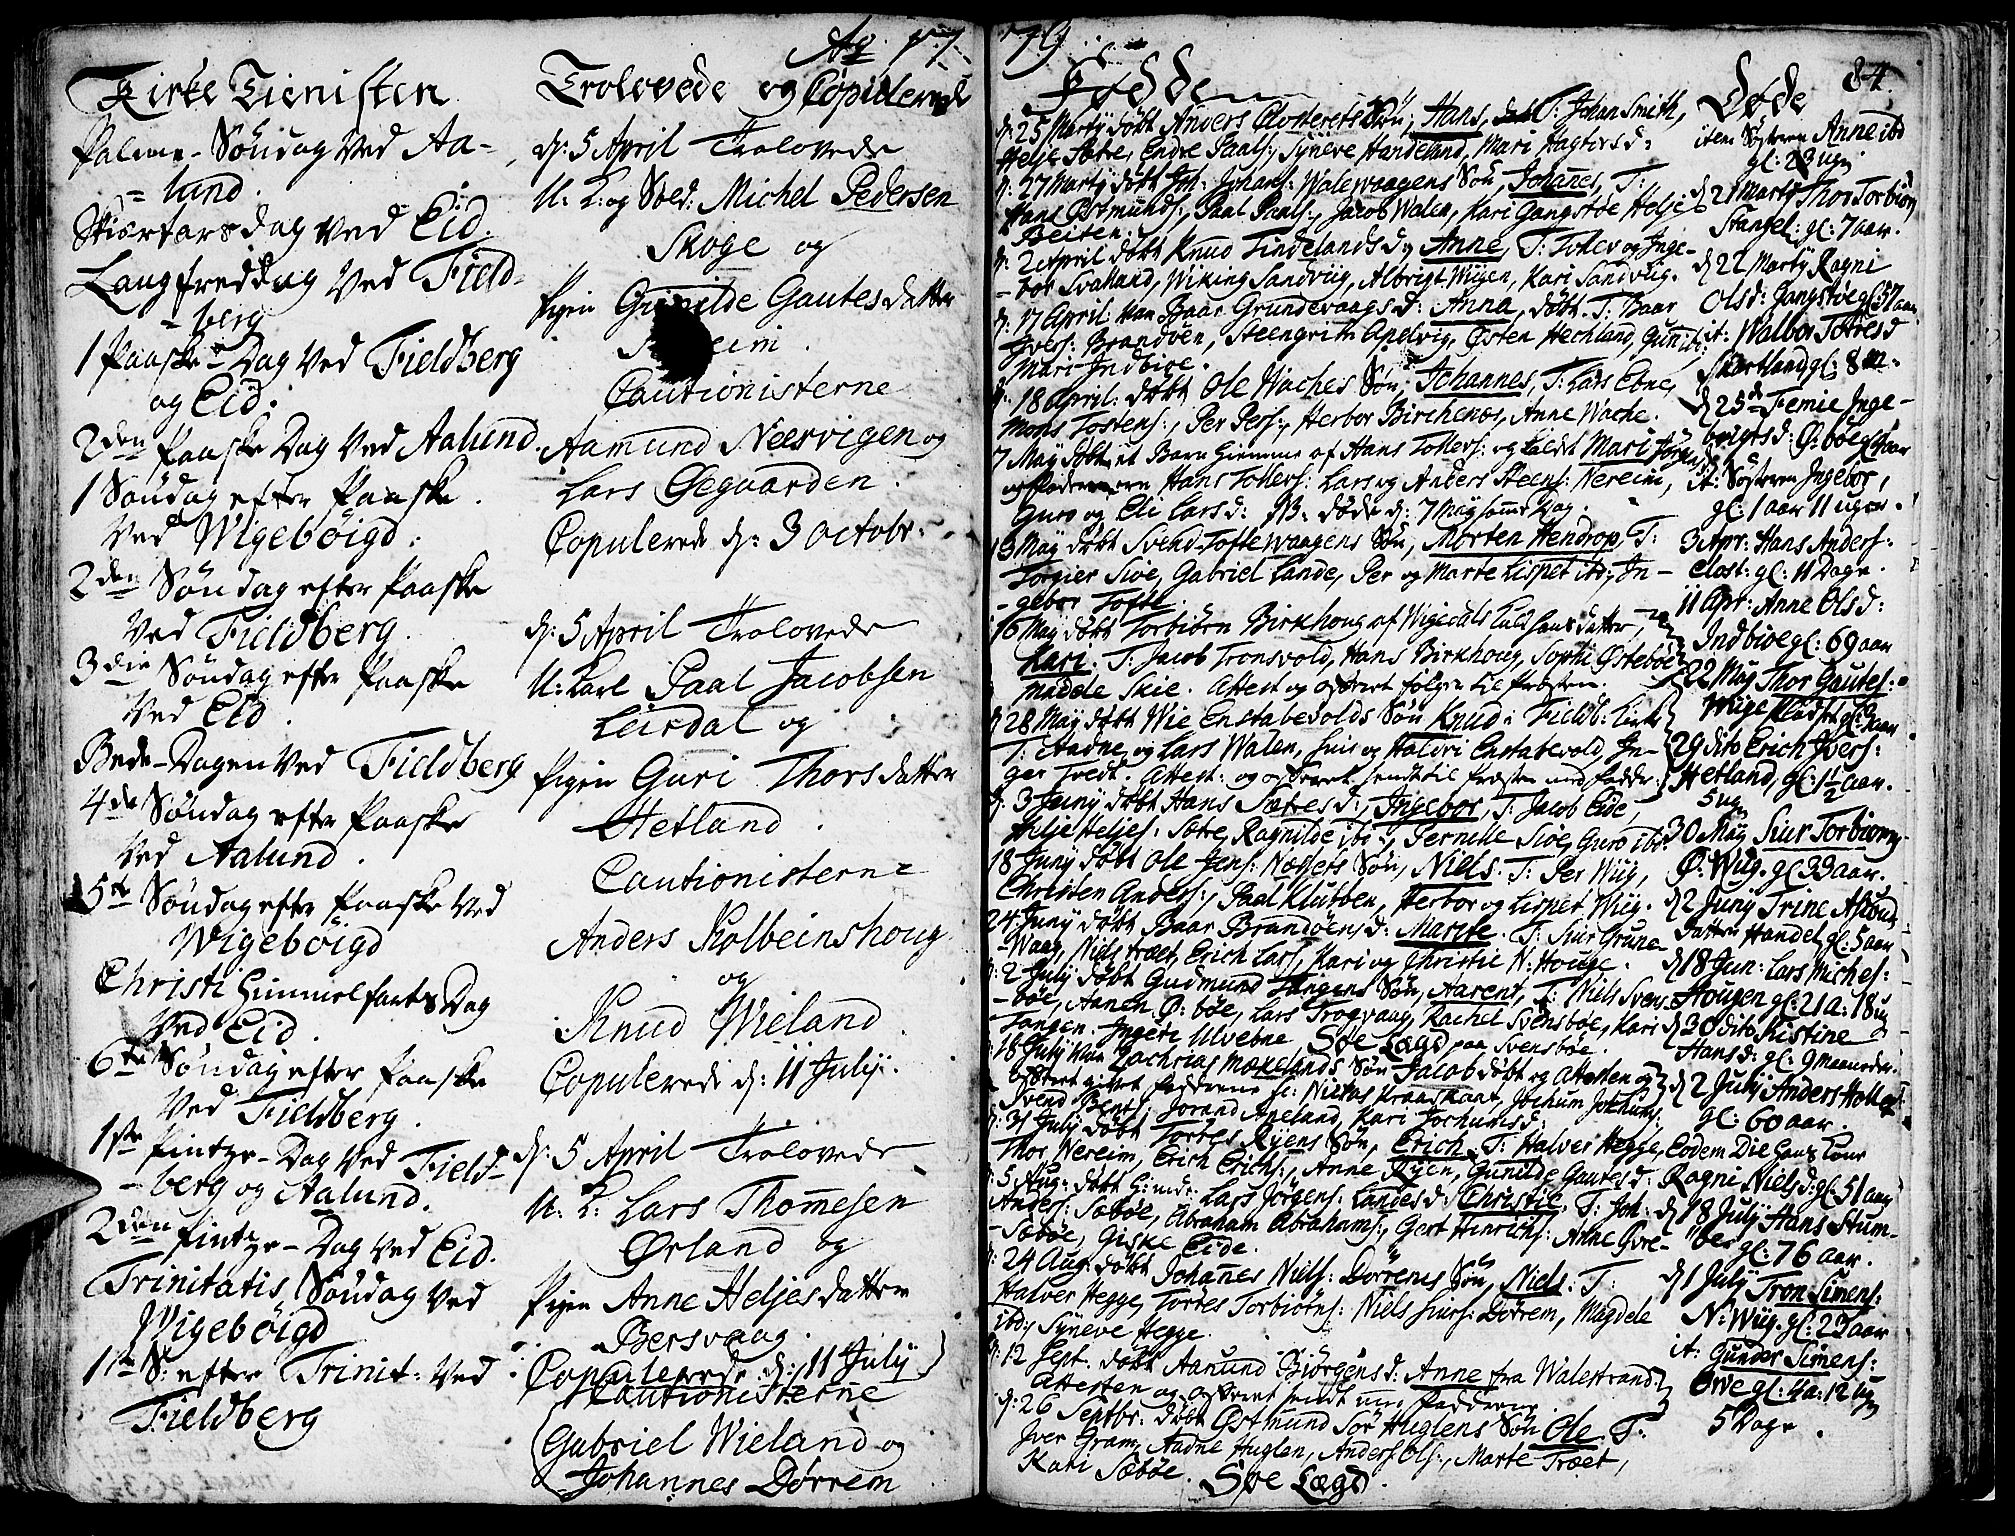 Ao 17
Kirke Tienisten
Palme-Søndag Ved Aa-
= lund.
Skiertorsdag Ved Eid.
Langfreddag Ved Field-
= berg
1 Paaske-Dag Ved Fieldberg
og Eid.
2den Paaske Dag Ved Aalund.
1 Søndag efter Paaske
Ved Wigebøigd.
2den Søndag efter Paaske
Ved Fieldberg.
3die Søndag efter Paaske
Ved Eid.
Bede-Dagen Ved Fieldberg
4de Søndag efter Paaske
Ved Aalund.
5te Søndag efter Paaske Ved
Wigebøigd
Christi Himmelfarts Dag
Ved Eid.
6te Søndag efter Paaske
Ved Fieldberg.
1ste Pintze-Dag Ved Field-
-berg og Aalund.
2den Pintze-Dag Ved Eid.
Trinitatis Søndag Ved
Wigebøigd
1ste S: efter Trinit: Ved
Fieldberg
Trolovede og Copulerede
d: 5 April Trolovede
U: K: og Sold: Michel Pedersen
Skoge og
Pigen Gunilde Gautesdatter
Cautionisterne
Aamund Neervigen og
Lars Øegaarden.
Copulerede d: 3 Octobr:
d: 5 April Trolovede
U: Karl Paal Jacobsen
Leirdal og
Pigen Guri Thorsdatter
Hetland.
Cautionisterne
Anders Kolbeinshoug
og
Knud Wieland.
Copulerede d: 11 July.
d: 5 April Trolovede
U: K: Lars Thomesen
Ørland og
Pigen Anne Heljesdatter
Bersvaag.
Copulerede d: 11 July
Cautionisterne
Gabriel Wieland og
Johannes Dørrem
79
Fødde
d: 25 Marty døbt Anders Closterets Søn, Hans, T: Johan Smith,
Helje Sætre, Endre Paals:, Syneve Handeland, Mari Hagtorsd:
d: 27 Marty døbt Joh: Johans: Walevaagens Søn, Johannes, T:
Hans Østmunds:, Paal Paals:, Jacob Walen, Kari Gangstøe, Helje
Beiten.
d: 2 April døbt Knud Tindelands d: Anne, T: Tollev og Inge-
-bor Svalland, Wiking Sandviig, Albrigt Wiigen, Kari Sandviig.
d: 17 April: Baar Grundevaags d: Anna, døbt. T: Baar
Ivers: Brandøen, Steengrim Apelvig, Østen Hechland, Guri ib:
Mari Indbioe.
d: 18 April: døbt Ole Waches Søn, Johannes, T: Lars Ebne,
Mons Tostens:, Per Pers:, Herbor Birchenæs, Anne Wache.
7 May døbt et Barn hiemme af Hans Tollevs: og kaldt Mari Jørgensd
og Fadderne ere Hans Tollevs: Lars og Anders Steens: Nereim,
Guro og Eli Larsd: NB: døde d: 7 May samme Dag.
13 May døbt Svend Toftevaagens Søn, Morten Hendrop, T:
Torgier Sioe, Gabriel Lande, Per og Marte Lispet ibd, In-
-gebor Tofte.
16 May døbt Torbiørn Birkhoug af Wigedals Kald hans datter,
Kari. T: Jacob Tronsvold, Hans Birkhoug, Sophi Østebøe
Madde Skie. Attest og offeret følger til Præsten.
d: 28 May døbt Wie Enstabevolds Søn Knud i Fieldb: Kirke
T: Aadne og Lars Walen, Siur og Haldri Enstabevold, In-
ger Tvedt. Attest: og offeret sendt til Præsten med Fadder:
d: 3 Juny døbt Hans Sætres d:, Ingebor, T: Jacob Eide,
Helje Heljes: Sætre, Ragnilde ib:, Pernille Sioe, Guro ibd:
18 Juny døbt Ole Jens: Næssets Søn, Niels. T: Per Wiig,
Christen Anders:, Paal Klubben, Herbor og Lispet Wiig.
24 Juny døbt Baar Brandøens d: Marite. T: Siur Grune-
Waag, Niels Træet, Erich Lars:, Kari og Christie N: Houge.
d: 2 July døbt Gudmund Tangens Søn, Aarent, T: Niels Svens-
-bøe, Aanen Ø: bøe, Lars Trogvaag, Rachel Svensbøe, Kari
Tangen. Ingeri Ulvebne Søe Lægd paa Svensbøe.
d: 18 July Zachrias Mækelands Søn Jacob døbt og Attesten og
offeret givet Fadderne: Niklas Kraaskant, Jochum Jochums:,
Svend Bent:, Jorand Aneland, Kari Jochumsd:
d: 31 July døbt Torres Øyens Søn, Erich, T: Halver Hegge,
Thor Nereim, Erich Erichs:, Anne Øyen, Gunilde Gautesd:
d: 5 Aug: døbt Lars Jørgens: Landes d: Christie, T: Joh:
Anders: Søbøe, Abraham Abrahams:, Gert Hinrichs: Anne Øvre-
-Søbøe, Giske Eide.
d: 24 Aug: døbt Johanes Niels: Dørrenes Søn, Niels. T:
Halver Hegge, Torres Torbiørns: Niels Siurs: Dørrem, Magdele
ibd:, Syneve Hegge.
d: 12 Sept: døbt Aanund Biørgens d: Anne fra Walestrand
Attesten og offeret sendt med Fadderne.
d: 26 Septbr: døbt Østmund Sør Huglens Søn Ole. T:
Iver Gram, Aadne Huglen, Anders Ols:, Marte Træet,
Kari Søbøe. Søe Lægd.
84
Døde
item Søsteren Anne ibd
gl: 23 ugr.
d 21 Marty Thor Torbiøn
Stangel: gl: 7 aar.
d 22 Marty Ragni
Olsd: Gangstøe gl: 57 aar
it: Walbor Torresd
Skartland gl: 8 m.
d 25de Femie Inge-
brigtsd: Ø: bøe gl: aar
it: Søsteren Ingebor,
gl: 1 aar 11 uger.
3 Apr: Hans Anders:
Clost: gl: 11 Dage.
11 Apr: Anne Olsd:
Indbioe gl: 69 aar
22 May Thor Gautes:
Wiige gl: aar
29 dito Erich Ivers:
Hetland, gl: 1½ aar.
5 ug
30 May Siur Torbiørns
Ø: Wiig. gl 33 aar.
d 2 Juny Trine Asmunds
Datter Handel gl: 5 aar
d 18 Jun: Lars Michels:
Hougen gl: 21 a: 18 u
d 30 dito Kistine
Hans d: gl: 9 maaneder.
d 2 July Anders
gl: 60 aar.
Eodem Die Hans Kone
Ragni Nielsd: gl: 51 aar
d 18 July Hans Stum-
ber gl: 76 aar.
d 1 July Tron Simens:
N: Wiig. gl: 29 aar
it: Gunder Simens:
Owe gl: 4 a: 12 ug
5 Dage.